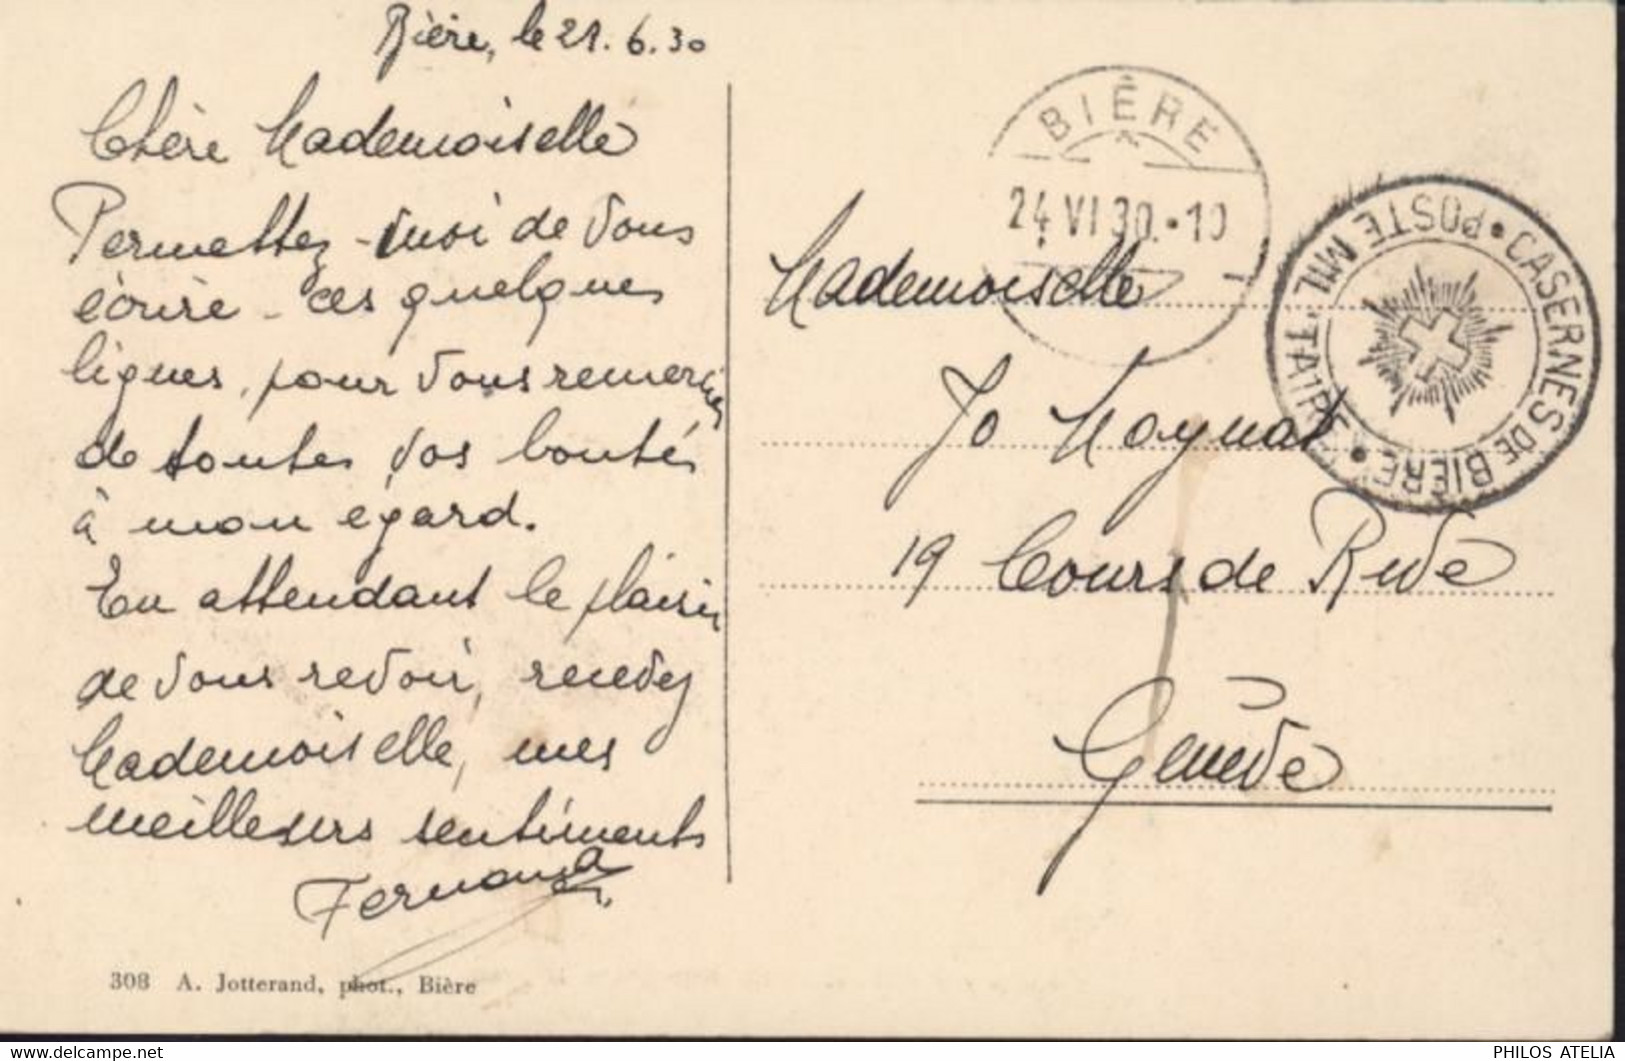 Bière, le 21.6.30
Chère Mademoiselle
Permettez-moi de vous
écrire ces quelques
lignes, pour vous remercier
de toutes vos bontés
à mon égard.
En attendant le plaisir
de vous revoir, recevez
Mademoiselle, mes
meilleurs sentiments
308 A. Jotterand, phot., Bière
BIÈRE
24.VI.30.-10
CASERNES DE BIÈRE • POSTE MILITAIRE •
Mademoiselle
Jo Moynat
19 Cours de Rive
Genève
PHILOS ATELIA